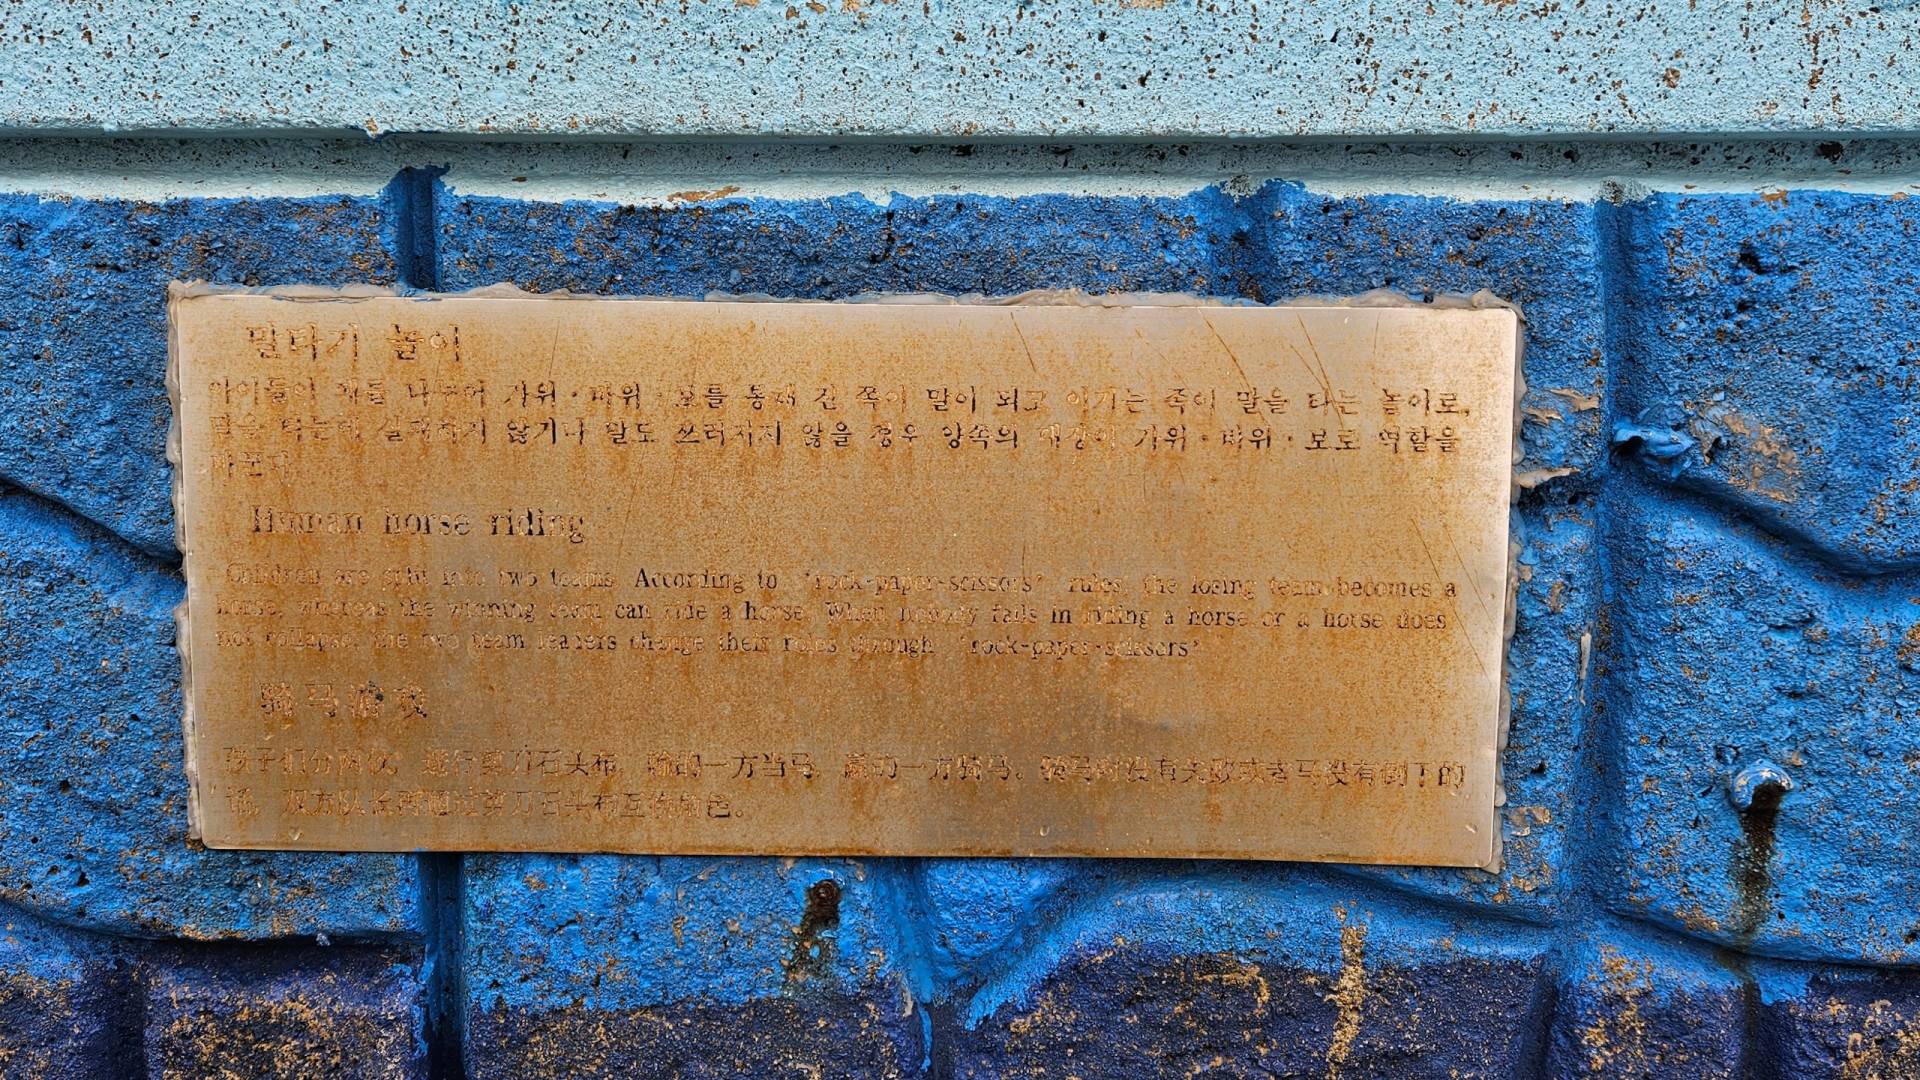 말타기 놀이
아이들이 패를 나누어 가위 · 바위 · 보를 통해 진 쪽이 말이 되고 이기는 쪽이 말을 타는 놀이로,
말을 타는데 실패하기 않거나 말도 쓰러지지 않을 경우 양쪽의 대장이 가위 · 바위 · 보로 역할을
바꾼다.
Human horse riding
Children are split into two teams. According to 'rock-paper-scissors' rules, the losing team becomes a
horse, whereas the winning team can ride a horse. When nobody fails in riding a horse or a horse does
not collapse, the two team leaders change their roles through 'rock-paper-scissors'
骑马游戏
孩子们分两伙，进行剪刀石头布，输的一方当马，赢的一方骑马。骑马时没有失败或者马没有倒下的
话，双方队长再通过剪刀石头布互换角色。